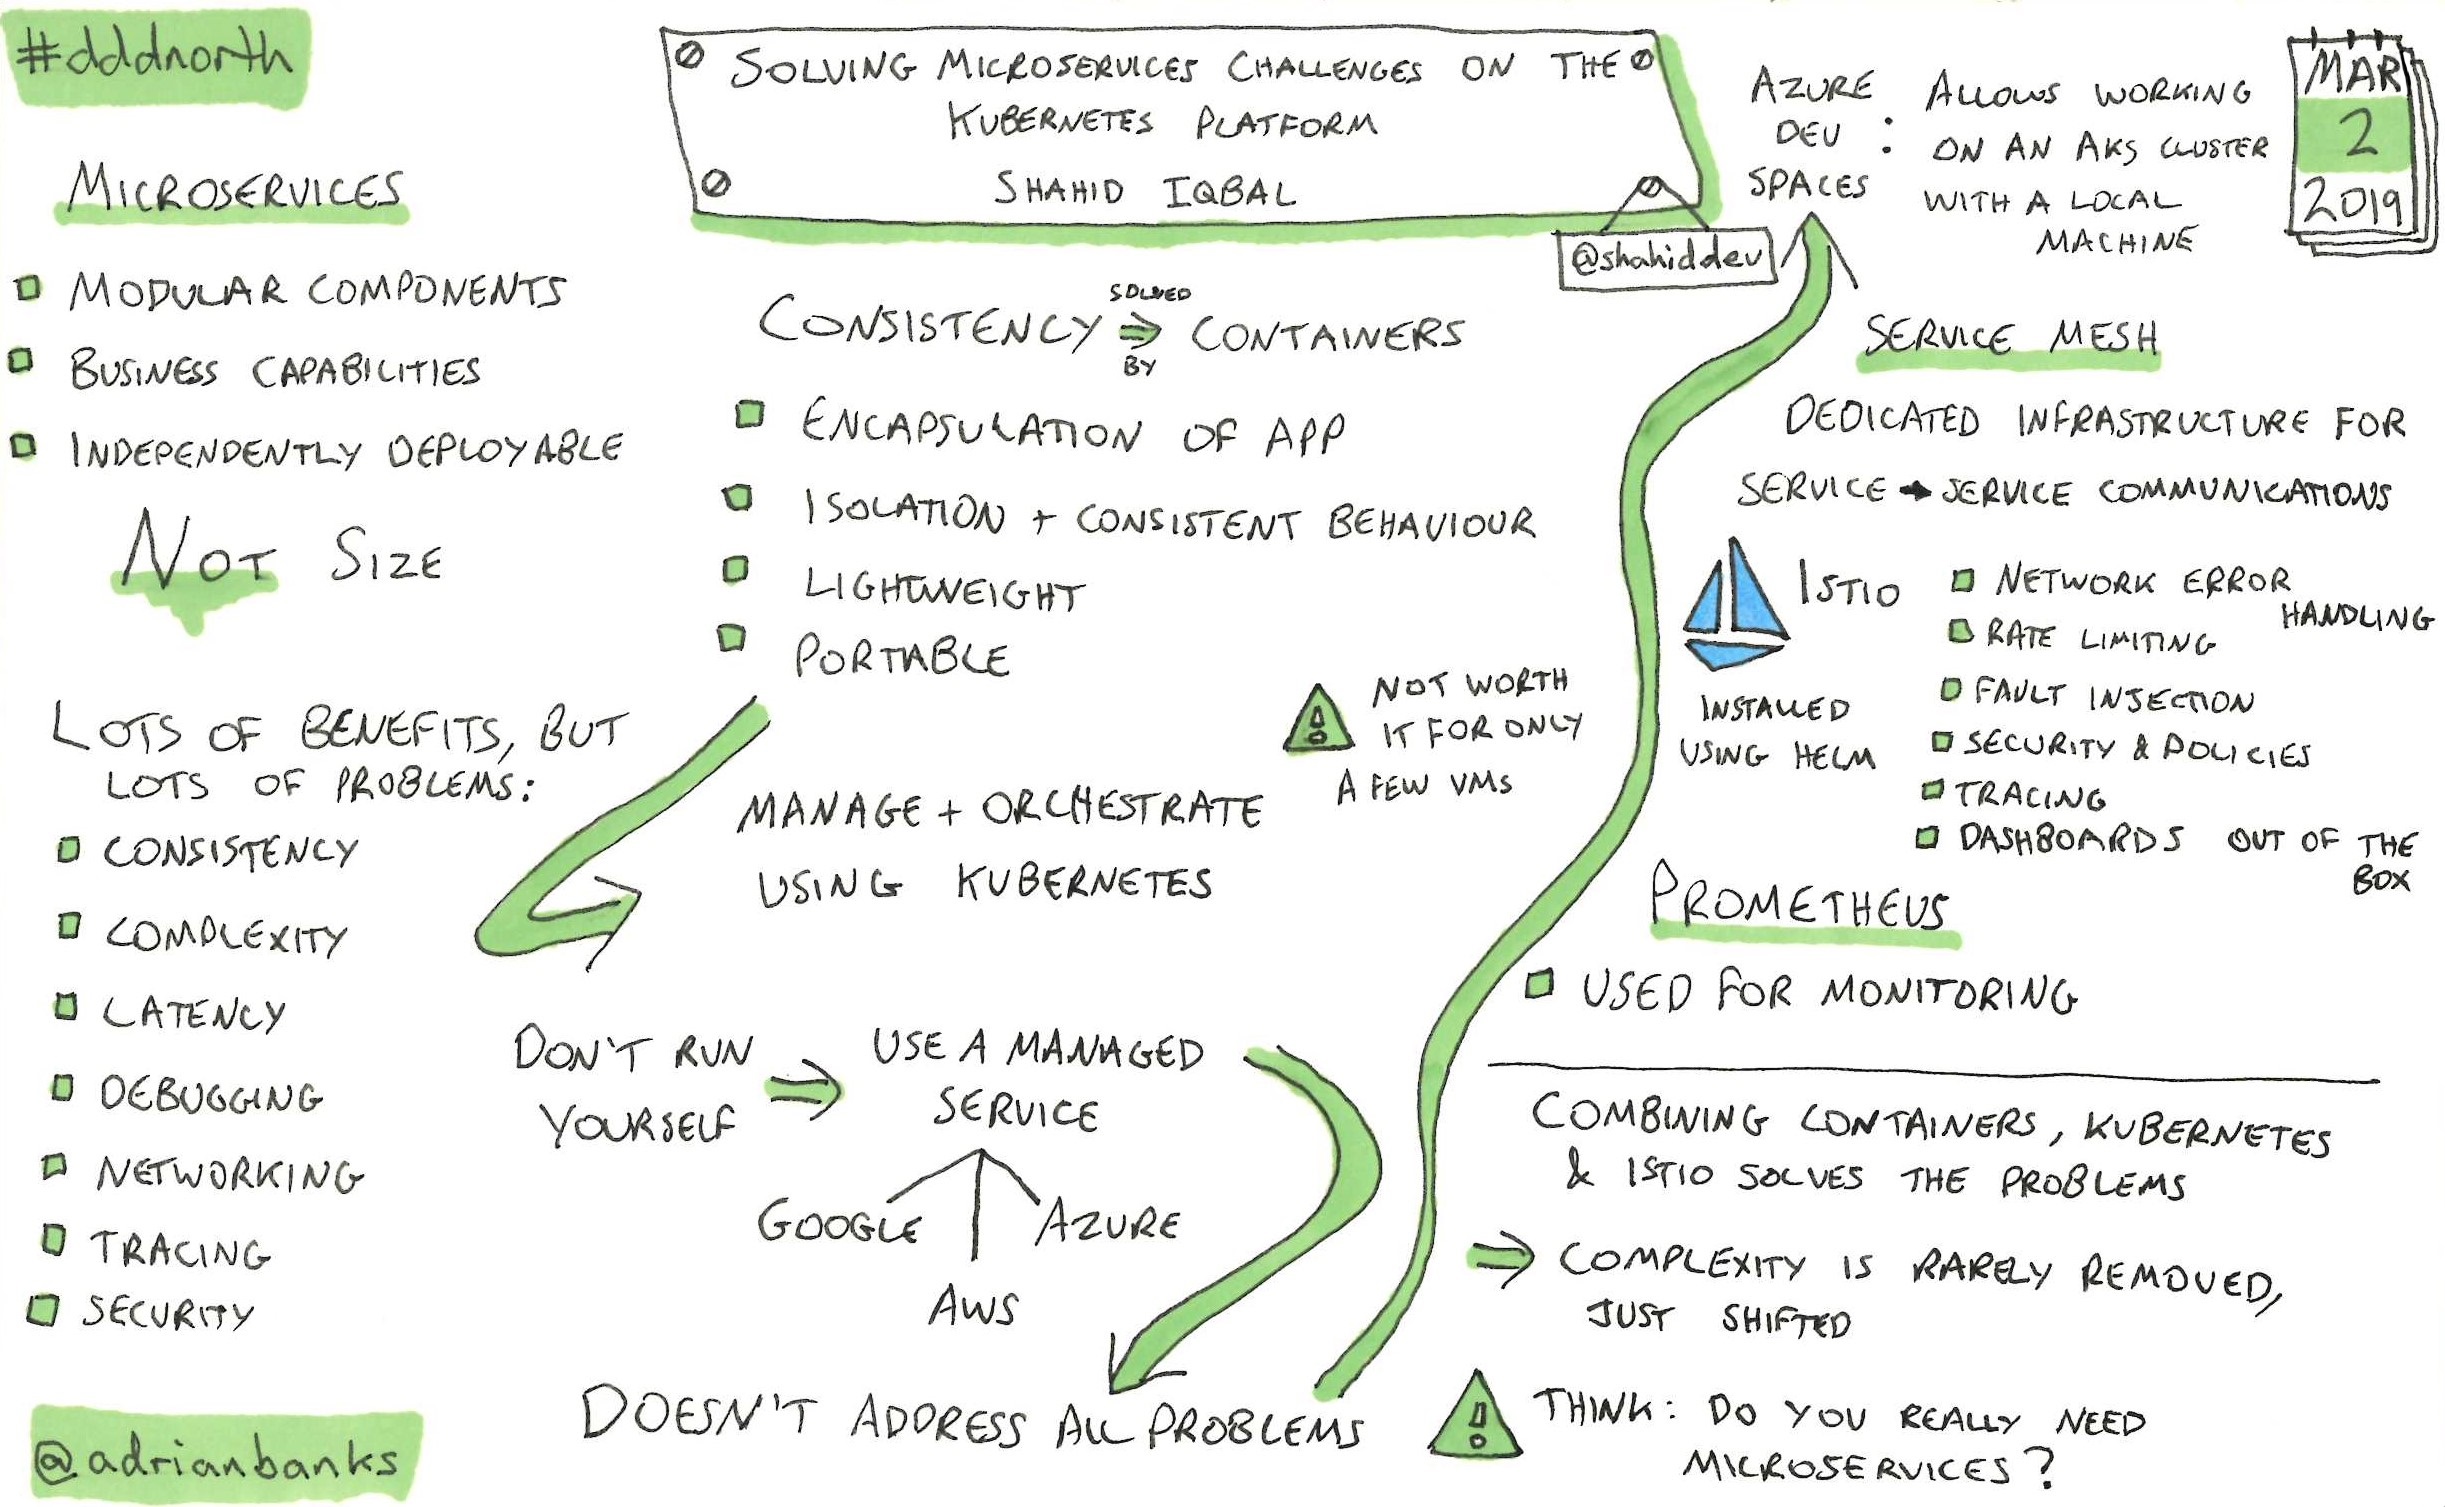 #dddnorth
SOLVING MICROSERVICES CHALLENGES ON THE
KUBERNETES PLATFORM
SHAHID IQBAL
@shahiddev
MAR
2
2019
MICROSERVICES
MODULAR COMPONENTS
BUSINESS CAPABILITIES
INDEPENDENTLY DEPLOYABLE
NOT SIZE
LOTS OF BENEFITS, BUT
LOTS OF PROBLEMS:
CONSISTENCY
COMPLEXITY
LATENCY
DEBUGGING
NETWORKING
TRACING
SECURITY
@adrianbanks
CONSISTENCY SOLVED BY ⇒ CONTAINERS
ENCAPSULATION OF APP
ISOLATION + CONSISTENT BEHAVIOUR
LIGHTWEIGHT
PORTABLE
MANAGE + ORCHESTRATE
USING KUBERNETES
NOT WORTH
IT FOR ONLY
A FEW VMS
DON'T RUN
YOURSELF
⇒ USE A MANAGED
SERVICE
GOOGLE
AWS
AZURE
DOESN'T ADDRESS ALL PROBLEMS
AZURE
DEV :
SPACES
ALLOWS WORKING
ON AN AKS CLUSTER
WITH A LOCAL
MACHINE
SERVICE MESH
DEDICATED INFRASTRUCTURE FOR
SERVICE → SERVICE COMMUNICATIONS
ISTIO
INSTALLED
USING HELM
NETWORK ERROR
HANDLING
RATE LIMITING
FAULT INJECTION
SECURITY & POLICIES
TRACING
DASHBOARDS OUT OF THE
BOX
PROMETHEUS
USED FOR MONITORING
COMBINING CONTAINERS, KUBERNETES
& ISTIO SOLVES THE PROBLEMS
⇒ COMPLEXITY IS RARELY REMOVED,
JUST SHIFTED
THINK: DO YOU REALLY NEED
MICROSERVICES?